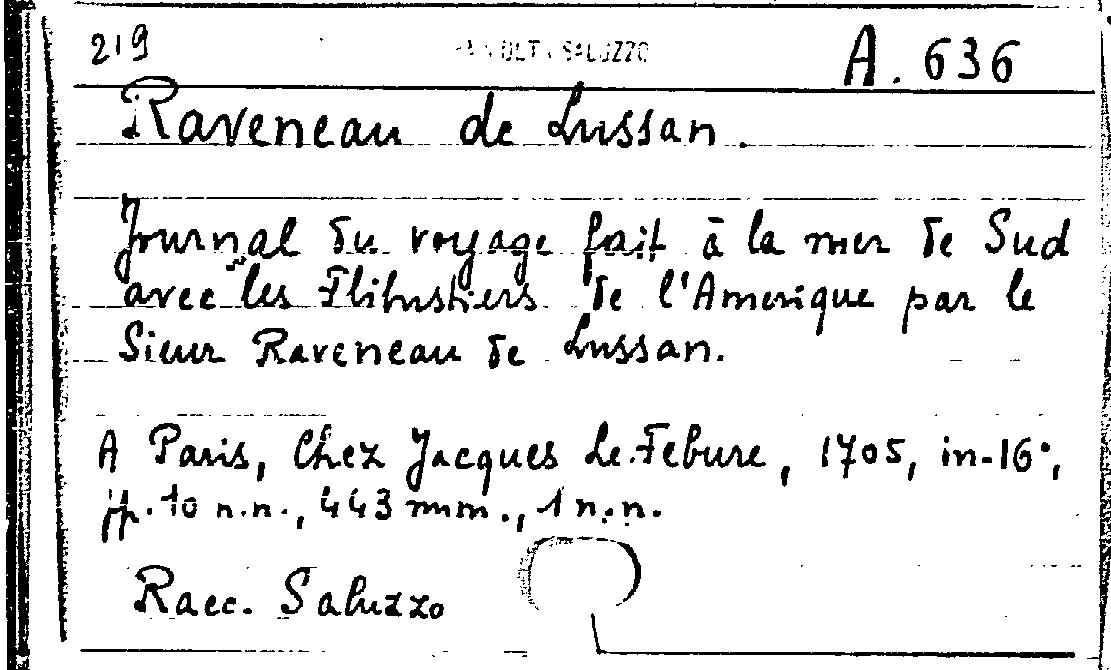 219 SALUZZO A. 636
Raveneau de Lussan.
Journal du voyage fait à la mer de Sud
avec les Flibustiers de l'Amerique par le
Sieur Raveneau de Lussan.
A Paris, Chez Jacques Le Febure, 1705, in-16°,
pp. 10 n.n., 443 num., 1 n.n.
Racc. Saluzzo